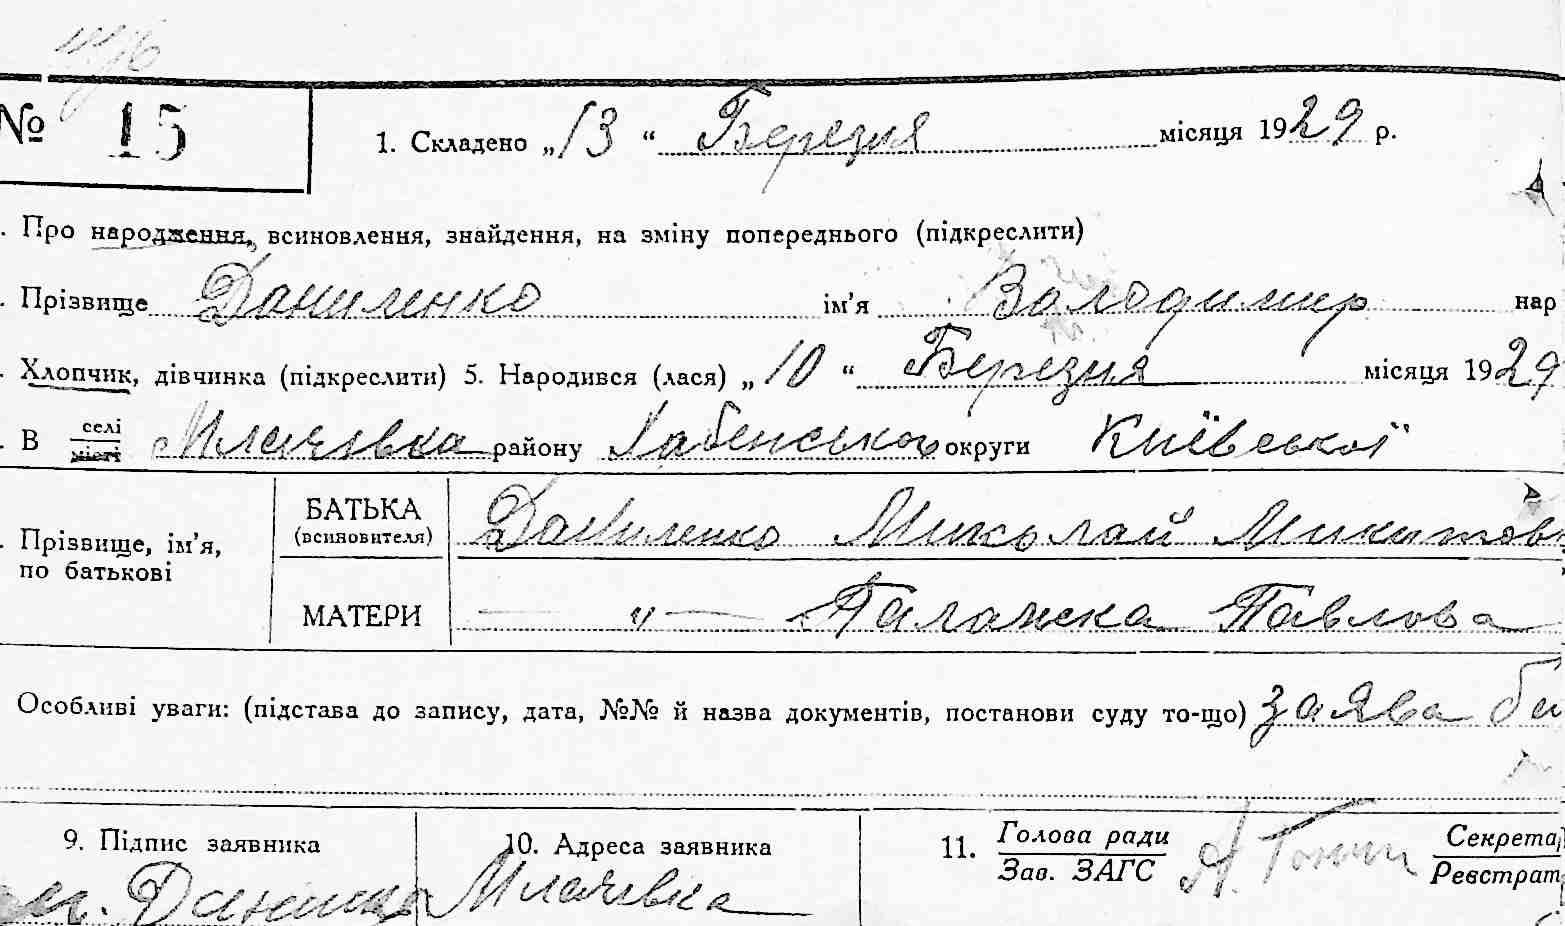 № 15
1. Складено „13“ Березня місяця 1929 р.
. Про народження, всиновлення, знайдення, на зміну попереднього (підкреслити)
. Прізвище Даниленко ім’я Володимир нар
. Хлопчик, дівчинка (підкреслити) 5. Народився (лася) „10“ Березня місяця 1929
. В селі місті Млачівка району Хабенського округи Київської
. Прізвище, ім’я, по батькові
БАТЬКА (всиновителя) Даниленко Миколай Микитов
МАТЕРИ — „ — Палажка Павлова
Особливі уваги: (підстава до запису, дата, №№ й назва документів, постанови суду то-що) заява
9. Підпис заявника
10. Адреса заявника
Млачівка
11. Голова ради
Зав. ЗАГС
Секрета
Реєстрат